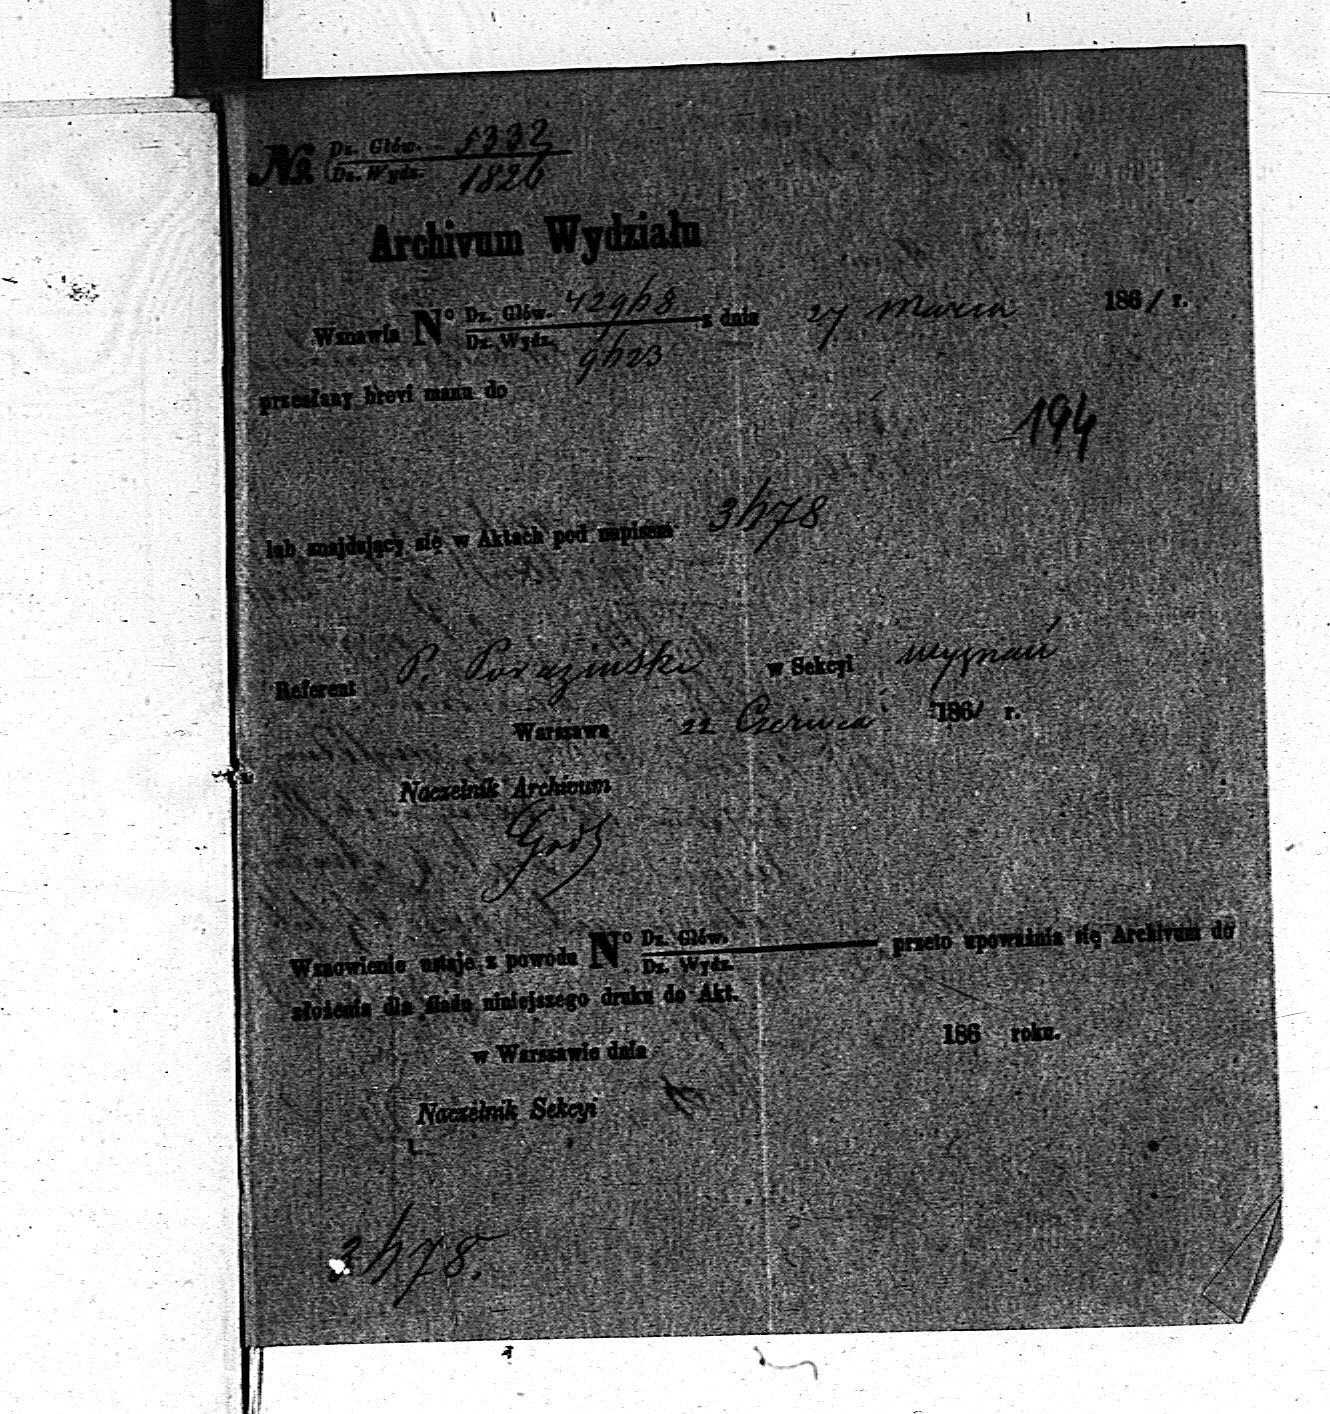 No. Dz. Głów. 5332
Dz. Wydz. 1826
Archivum Wydziału
Wznawia No Dz. Głów. z dnia 27 Marca 1861 r.
Dz. Wydz.
przesłany brevi manu do
194
lub znajdujący się w Aktach pod napisem 3/478
Referent P. Poraziński w Sekcyi wyznań
Warszawa 22 Czerwca 1861 r.
Naczelnik Archivum
Wznowienie ustaje z powodu No Dz. Głów. przeto upoważnia się Archivum do
Dz. Wydz.
złożenia dla śladu niniejszego druku do Akt.
w Warszawie dnia 186 roku.
Naczelnik Sekcyi